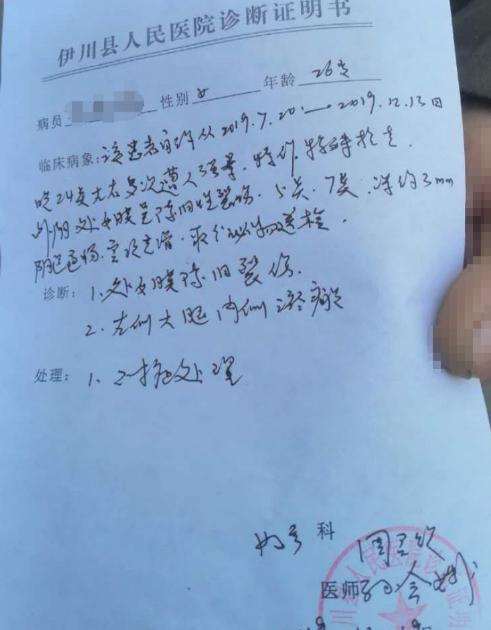 伊川县人民医院诊断证明书
病员 性别 女 年龄 26岁
临床病象: 该患者自约从2019.7.20.—2019.12.13日
晚24点左右多次遭人强暴. 特作特殊检查
外阴处女膜呈陈旧性裂伤. 5点. 7点. 深约3mm
阴道通畅. 取分泌物送检.
诊断: 1. 处女膜陈旧裂伤.
2. 左侧大腿内侧
处理: 1. 对症处理
妇产科
医师